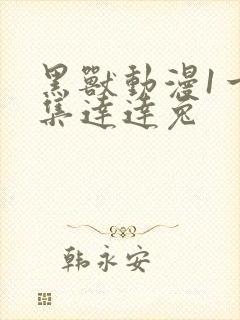 黑獸動漫1一
集達達兔
韩永安